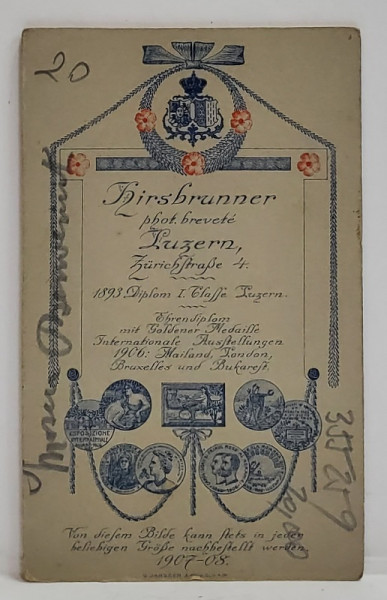 20
Hirsbrunner
phot. breveté
Luzern,
Zürichstraße 4.
1893 Diplom I. Classe Luzern.
Ehrendiplom
mit Goldener Medaille
Internationale Ausstellungen
1906: Mailand, London,
Bruxelles und Bukarest.
ESPOSIZIONE
Von diesem Bilde kann stets in jeder
beliebigen Größe nachbestellt werden
1907-08.